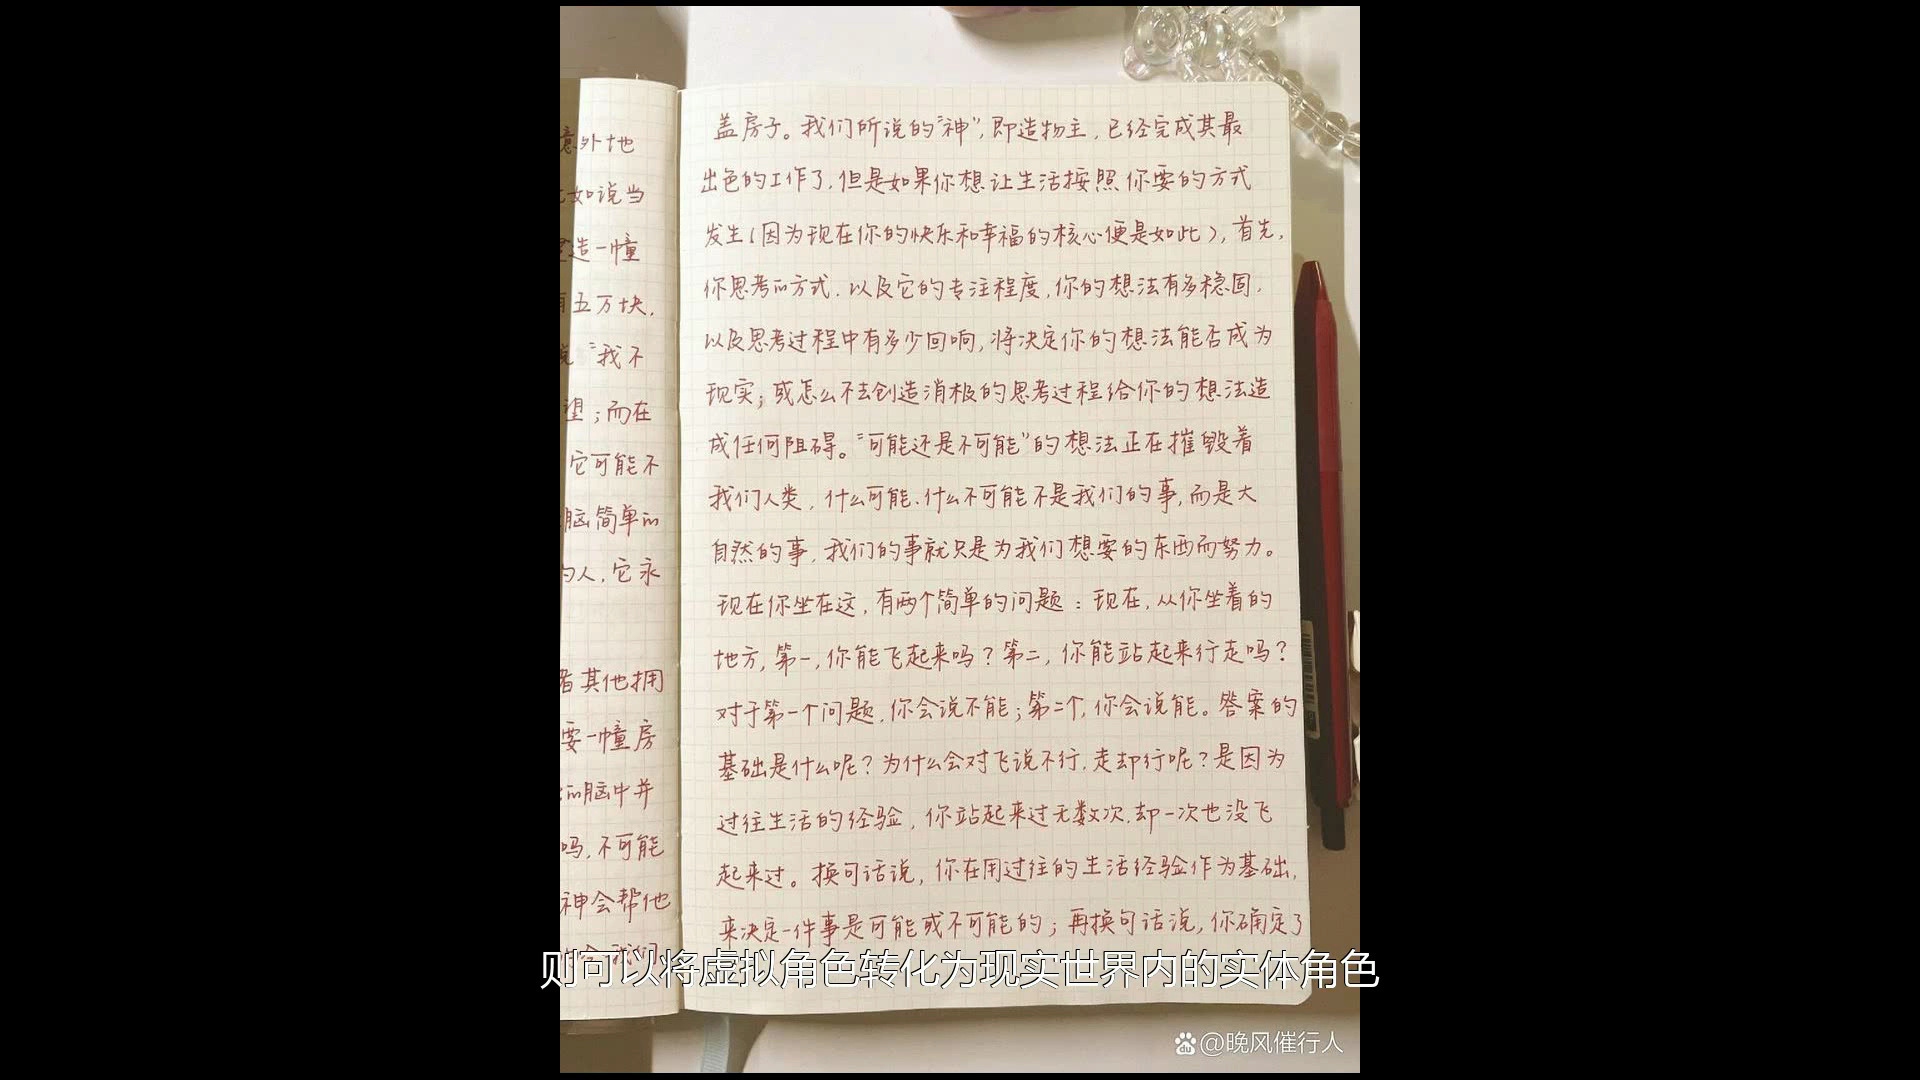 意外地
如说当
造一幢
有五万块,
说"我不
望;而在
它可能不
脑简单的
的人,它永
者其他拥
要一幢房
的脑中并
吗,不可能
神会帮他
盖房子。我们所说的"神",即造物主,已经完成其最
出色的工作了,但是如果你想让生活按照你要的方式
发生(因为现在你的快乐和幸福的核心便是如此),首先,
你思考的方式,以及它的专注程度,你的想法有多稳固,
以及思考过程中有多少回响,将决定你的想法能否成为
现实;或怎么不去创造消极的思考过程给你的想法造
成任何阻碍。"可能还是不可能"的想法正在摧毁着
我们人类,什么可能、什么不可能不是我们的事,而是大
自然的事,我们的事就只是为我们想要的东西而努力。
现在你坐在这,有两个简单的问题:现在,从你坐着的
地方,第一,你能飞起来吗?第二,你能站起来行走吗?
对于第一个问题,你会说不能;第二个,你会说能。答案的
基础是什么呢?为什么会对飞说不行,走却行呢?是因为
过往生活的经验,你站起来过无数次,却一次也没飞
起来过。换句话说,你在用过往的生活经验作为基础,
来决定一件事是可能或不可能的;再换句话说,你确定了
则可以将虚拟角色转化为现实世界内的实体角色
@晚风催行人